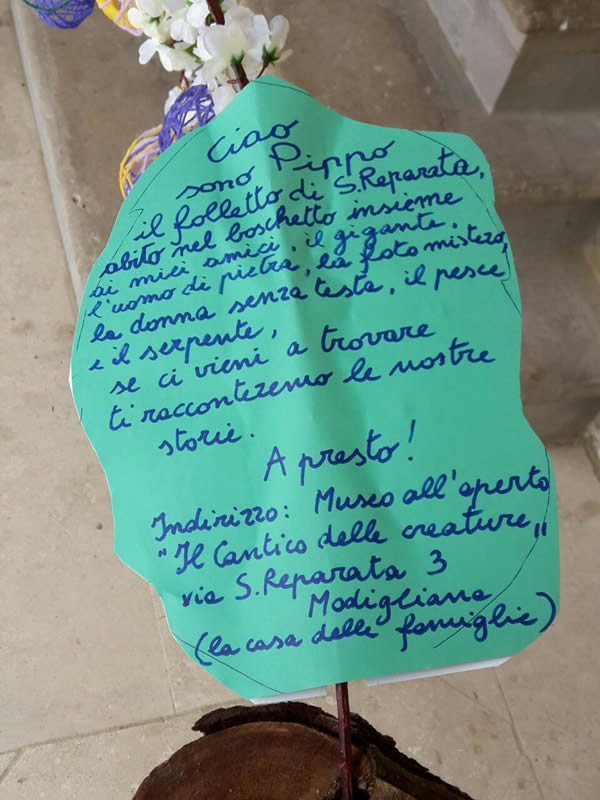 Ciao
sono Pippo
il folletto di S.Reparata,
abito nel boschetto insieme
ai miei amici, il gigante,
l'uomo di pietra, la foto mistero,
la donna senza testa, il pesce
e il serpente,
se ci vieni a trovare
ti racconteremo le nostre
storie.
A presto!
Indirizzo: Museo all'aperto
"Il Cantico delle creature"
via S.Reparata 3
Modigliana
(la casa delle famiglie)